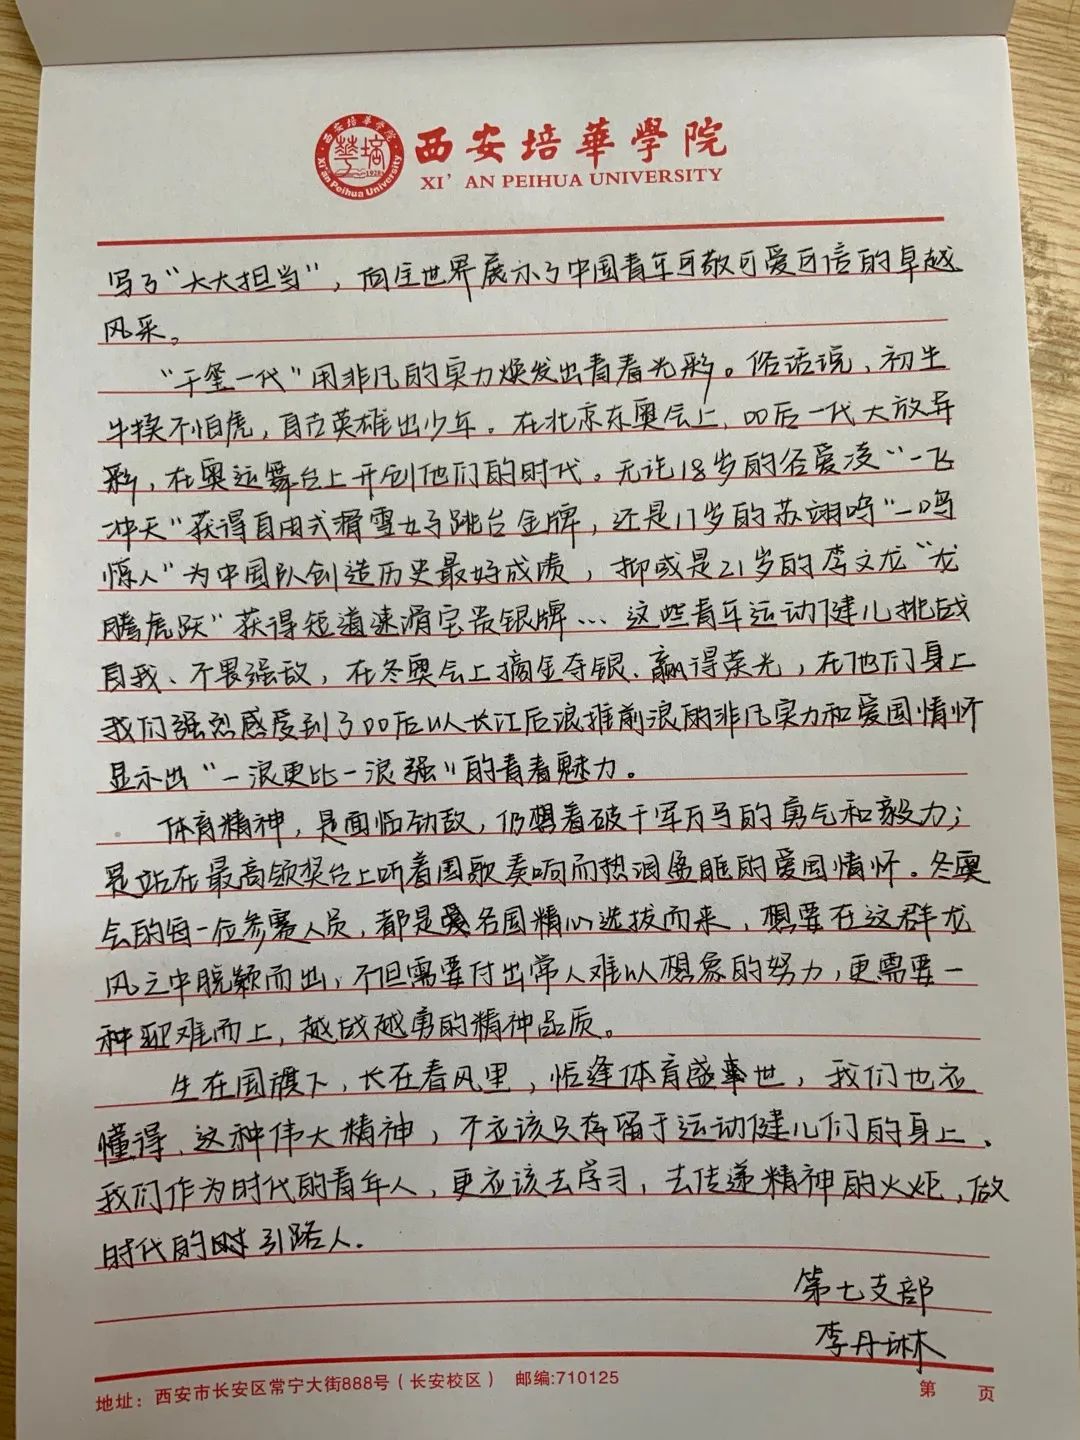 西安培華學院
XI'AN PEIHUA UNIVERSITY
写了“大大担当”，向全世界展示了中国青年可敬可爱可信的卓越
风采。
“千玺一代”用非凡的实力焕发出青春光彩。俗话说、初生
牛犊不怕虎，自古英雄出少年。在北京东奥会上，00后一代大放异
彩，在奥运舞台上开创他们的时代。无论18岁的谷爱凌“一飞
冲天”获得自由式滑雪女子跳台金牌，还是17岁的苏翊鸣“一鸣
惊人”为中国队创造历史最好成绩，抑或是21岁的李文龙“龙
腾虎跃”获得短道速滑宝贵银牌…这些青年运动健儿挑战
自我、不畏强敌，在冬奥会上摘金夺银、赢得荣光，在他们身上
我们强烈感受到了00后以长江后浪推前浪的非凡实力和爱国情怀
显示出“一浪更比一浪强”的青春魅力。
体育精神，是面临劲敌，仍想着破千军万马的勇气和毅力；
是站在最高领奖台上听着国歌奏响而热泪盈眶的爱国情怀。冬奥
会的每一位参赛人员，都是各国精心选拔而来，想要在这群龙
风之中脱颖而出，不但需要付出常人难以想象的努力，更需要一
种迎难而上，越战越勇的精神品质。
生在国旗下，长在春风里，恰逢体育盛世，我们也应
懂得、这种伟大精神，不应该只存留于运动健儿们的身上、
我们作为时代的青年人，更应该去学习，去传递精神的火炬，做
时代的引路人.
第七支部
李丹琳
地址：西安市长安区常宁大街888号（长安校区） 邮编:710125
第 页